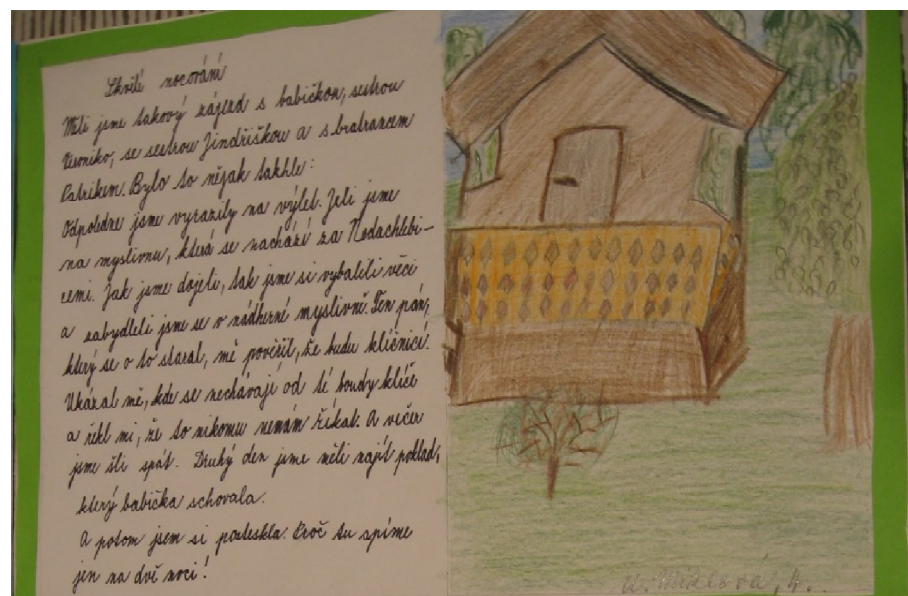 Skvělé nocování
Měli jsme takový zájezd s babičkou, sestrou
Veroniko, se sestrou Jindřiškou a s bratrancem
Patrikem. Bylo to nějak takhle:
Odpoledne jsme vyrazily na výlet. Jeli jsme
na myslivnu, která se nachází za Nedachlebi-
cemi. Jak jsme dojeli, tak jsme si vybalili věci
a zabydleli jsme se v nádherné myslivně. Ten pán,
který se o to staral, mě pověřil, že budu klíčnicí.
Ukázal mě, kde se nechávají od té boudy klíče
a řekl mi, že to nikomu nemám říkat. A večer
jsme šli spát. Druhý den jsme měli najít poklad,
který babička schovala.
A potom jsem si posteskla. Proč tu spíme
jen na dvě noci!